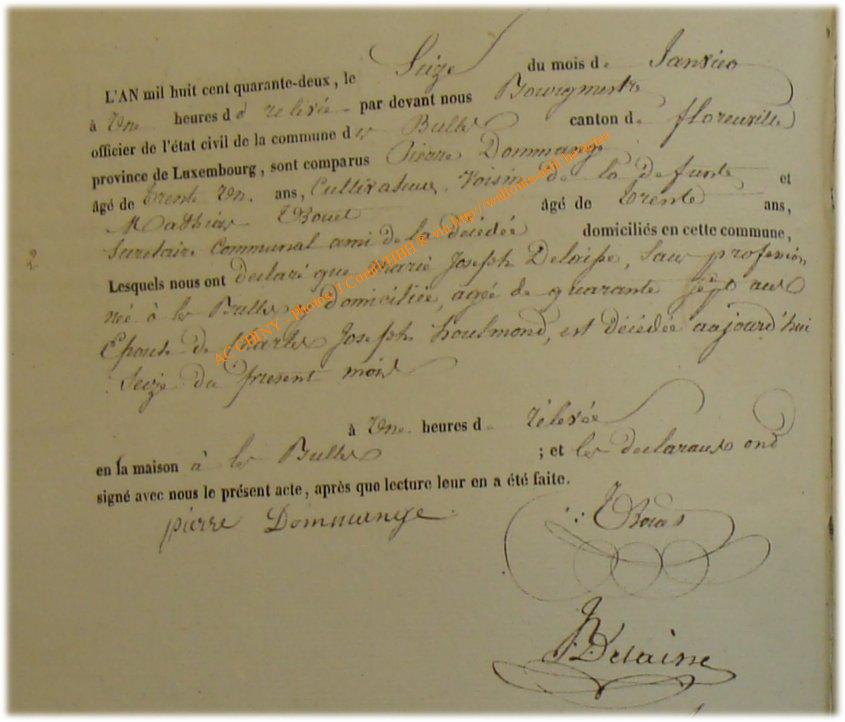 L'AN mil huit cent quarante-deux, le Seize du mois de Janvier
à Une heures d e relevée par devant nous Bourgmestre
officier de l'état civil de la commune d es Bulles canton de florenville
province de Luxembourg, sont comparus Pierre Dommange
âgé de trente Un ans, Cultivateur Voisin de la defunte et
Mathias âgé de trente ans,
Secretaire Communal ami de la décédée domiciliés en cette commune,
Lesquels nous ont declaré que Marie Joseph Deloisse, Sans profession
neé à les Bulles domiciliée, agée de quarante sept ans
Epouse de Charles Joseph houlmond, est décédée aujourd'hui
Seize du present mois
à Une heures de rélevée
en la maison à les Bulles ; et les declarants ond
signé avec nous le présent acte, après que lecture leur en a été faite.
pierre Dommange
Delaine
2